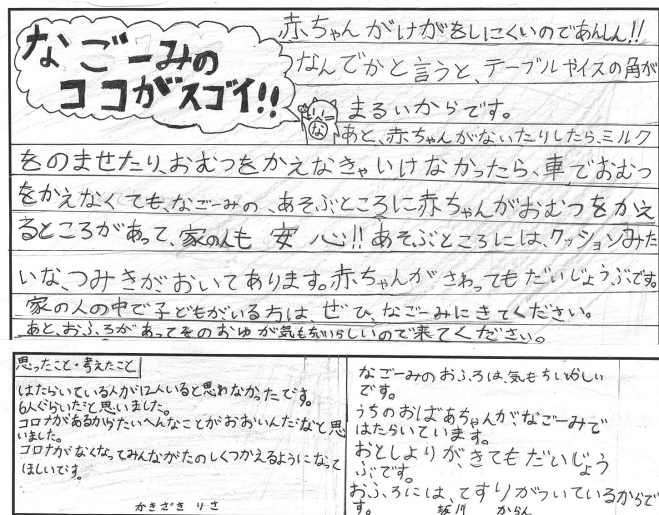 なごーみの
ココがスゴイ!!
赤ちゃんがけがをしにくいのであんしん!!
なんでかと言うと、テーブルやイスの角が
まるいからです。
な
あと、赤ちゃんがないたりしたら、ミルク
をのませたり、おむつをかえなきゃいけなかったら、車でおむつ
をかえなくても、なごーみの、あそぶところに赤ちゃんがおむつをかえ
るところがあって、家の人も安心!!あそぶところには、クッションみた
いな、つみきがおいてあります。赤ちゃんがさわってもだいじょうぶです。
家の人の中で子どもがいる方は、ぜひ、なごーみにきてください。
あと、おふろがあってそのおゆが気もちいらしいので来てください。
思ったこと・考えたこと
はたらいている人が12人いると思わなかったです。
6人ぐらいだと思いました。
コロナがあるからたいへんなことがおおいんだなと思
いました。
コロナがなくなってみんながたのしくつかえるようになって
ほしいです。
かきざき りさ
なごーみのおふろは、気もちいらしい
です。
うちのおばあちゃんが、なごーみで
はたらいています。
おとしよりが、きてもだいじょう
ぶです。
おふろには、てすりがついているからで
す。
坂川 からん